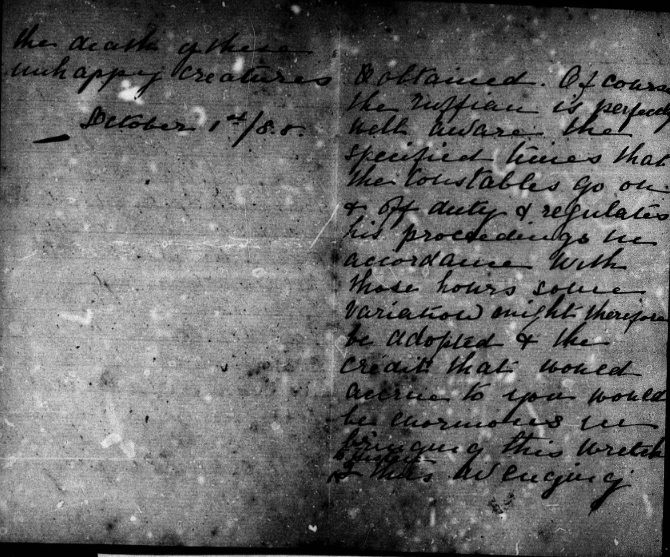 & obtained. Of course
the ruffian is perfectly
well aware the
specified times that
the Constables go on
& off duty & regulates
his proceedings in
accordance with
those hours some
variation might therefore
be adopted & the
credit that would
accrue to you would
be enormous in
bringing this wretch
& thus avenging
the death of these
unhappy creatures
October 1st/88.